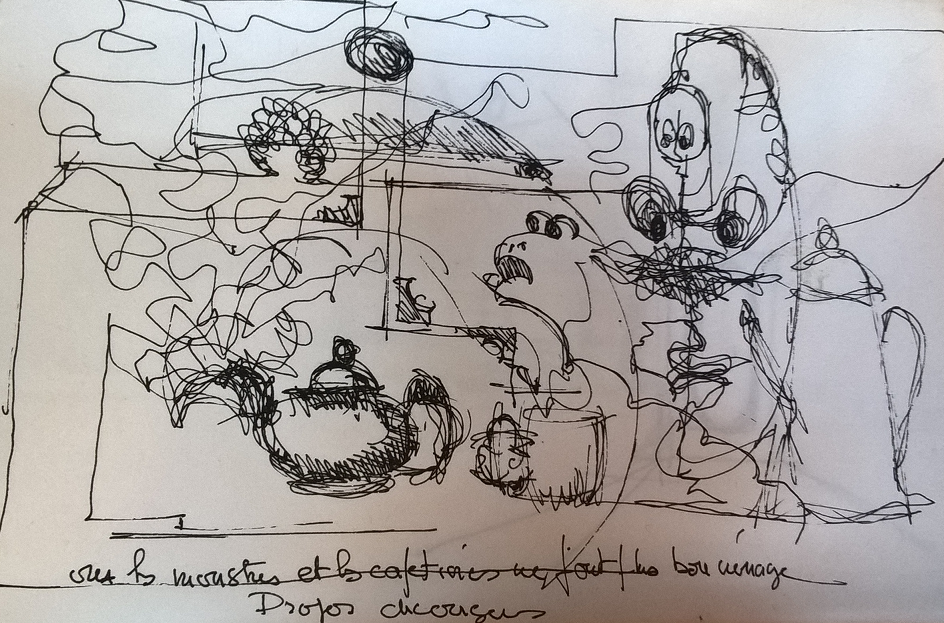 où les monstres et les cafetières ne font plus bon ménage
Propos